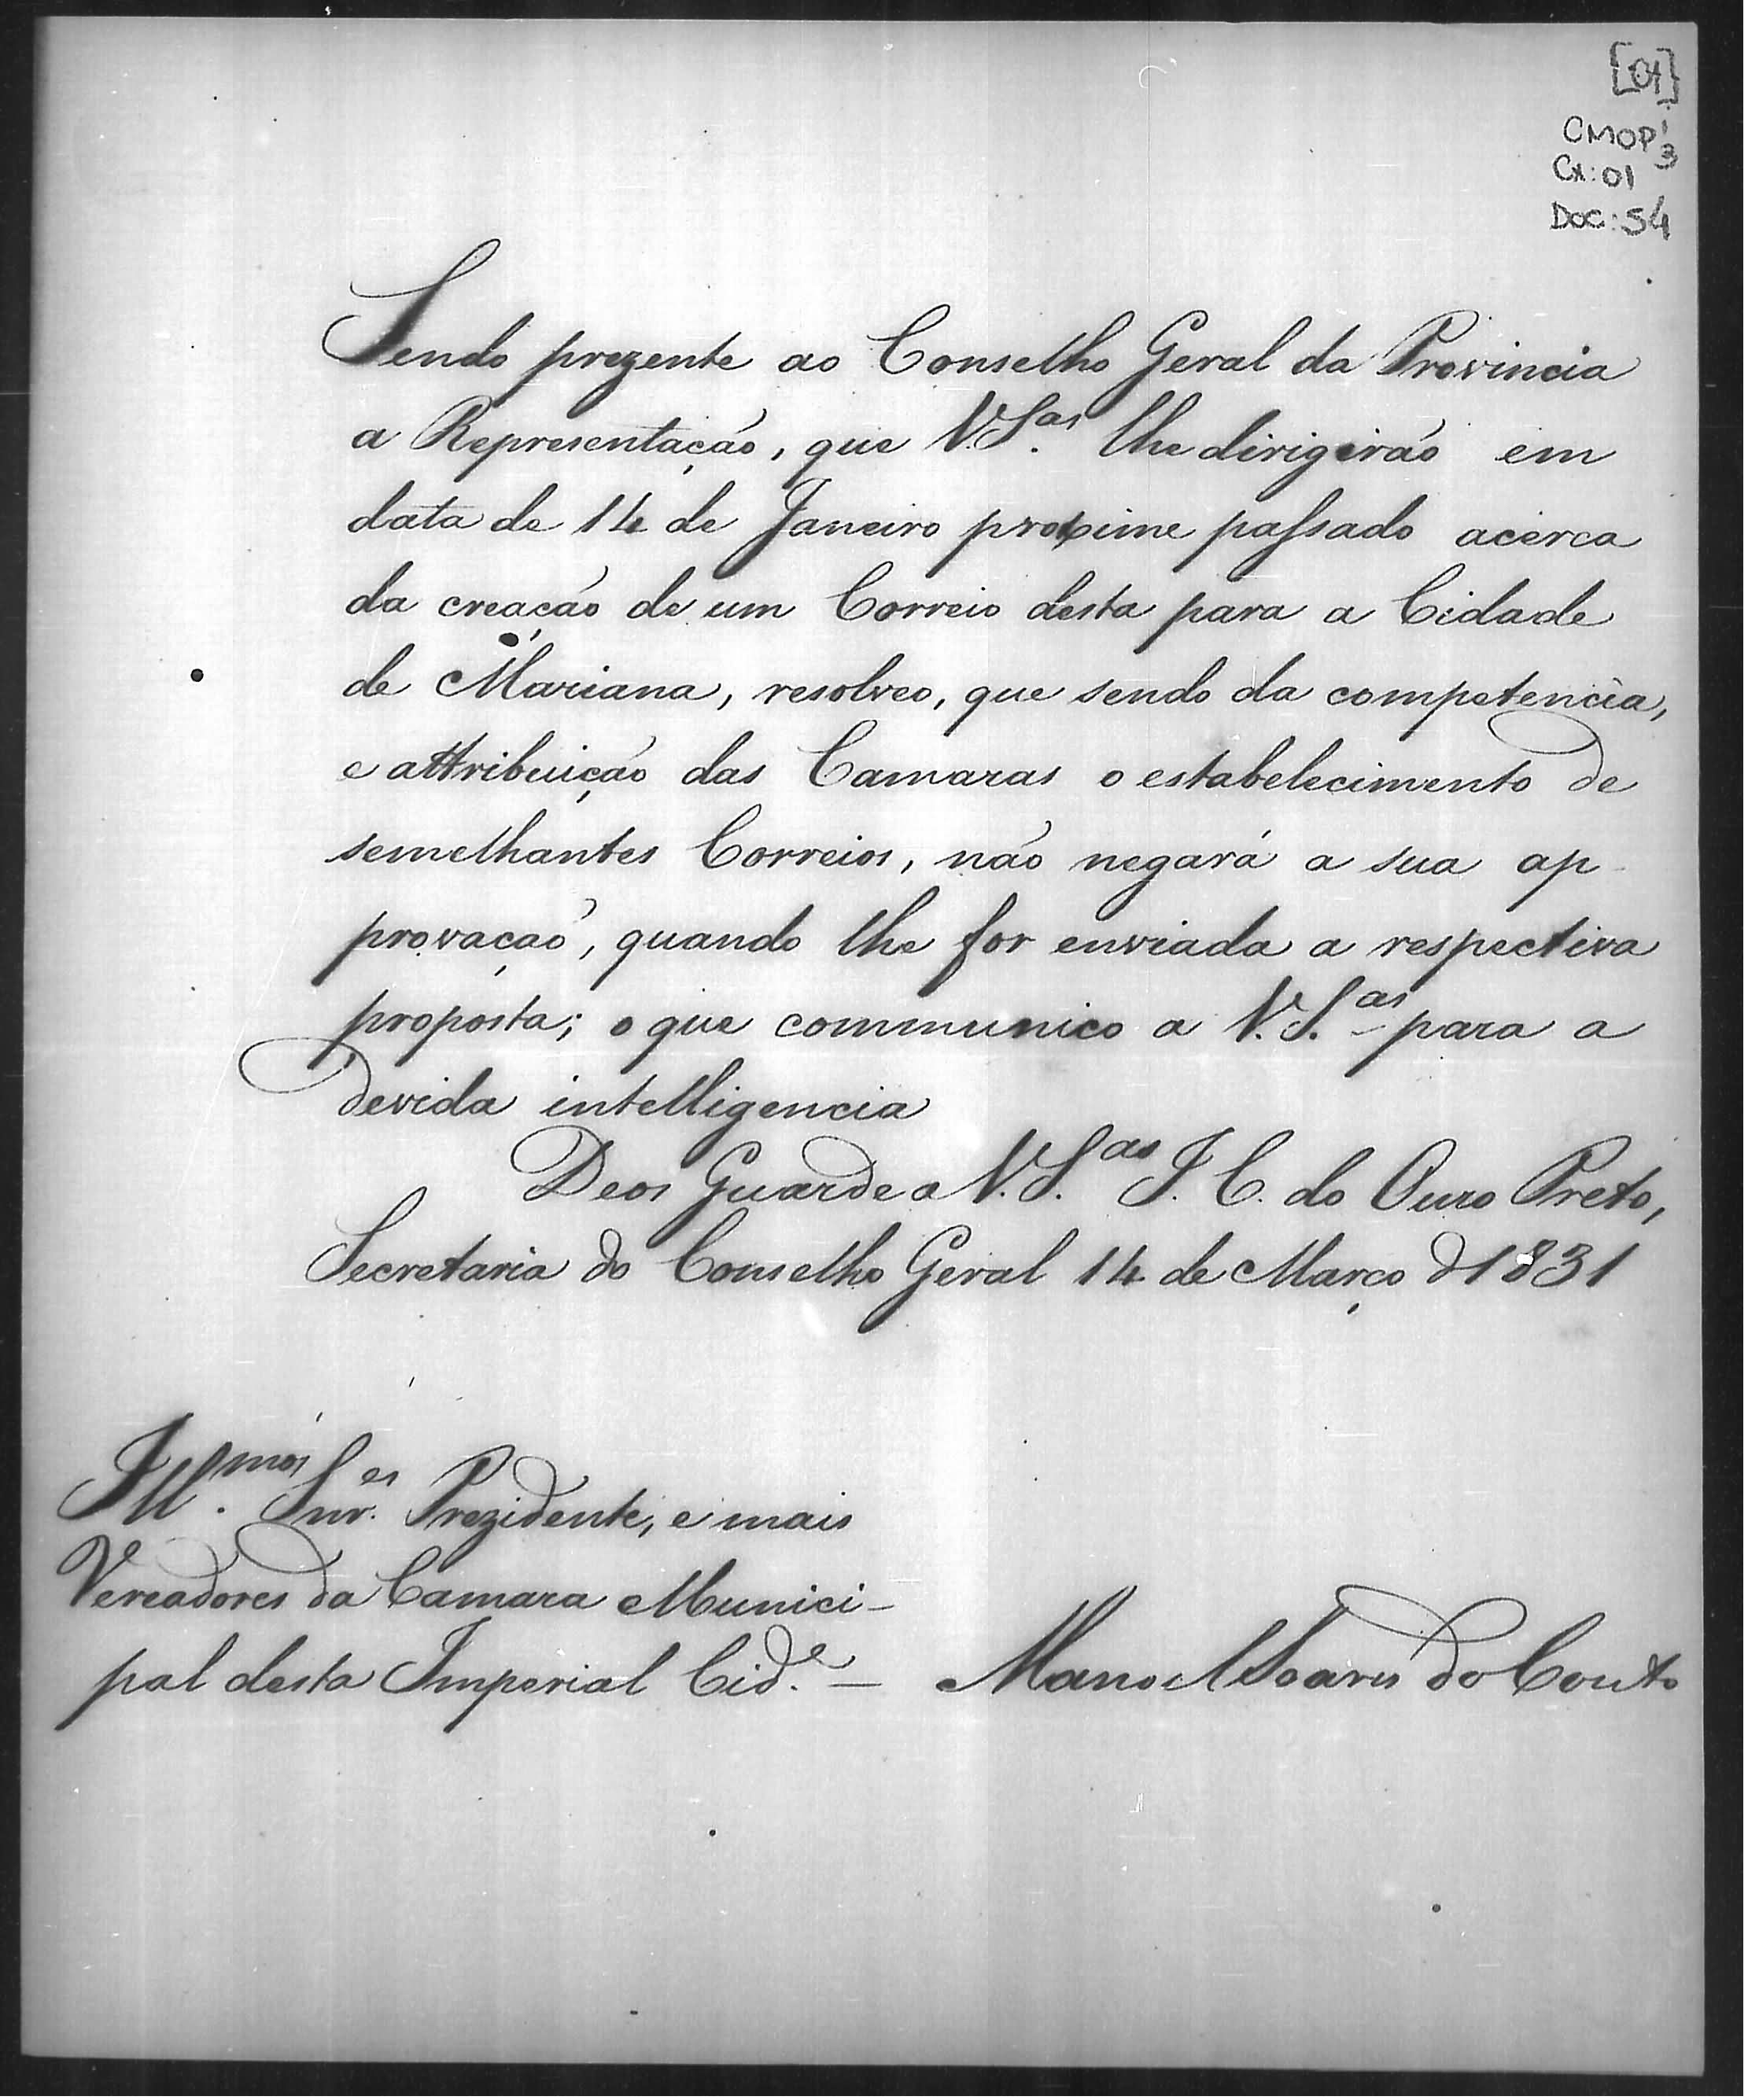 [01]
CMOP 1
3
CX: 01
DOC: 54
Sendo prezente ao Conselho Geral da Provincia
a Representação, que V.S.as lhe dirigirão em
data de 14 de Janeiro proximo passado acerca
da creação de um Correio desta para a Cidade
de Mariana, resolveo, que sendo da competencia,
e attribuição das Camaras o estabelecimento de
semelhantes Correios, não negará a sua ap-
provação, quando lhe for enviada a respectiva
proposta; o que communico a V.S.as para a
devida intelligencia
Deos Guarde a V.S.as I. C. do Ouro Preto,
Secretaria do Conselho Geral 14 de Março d 1831
Ill.mos Snr.es Prezidente, e mais
Vereadores da Camara Munici-
pal desta Imperial Cid.e —
Manoel Soares do Couto